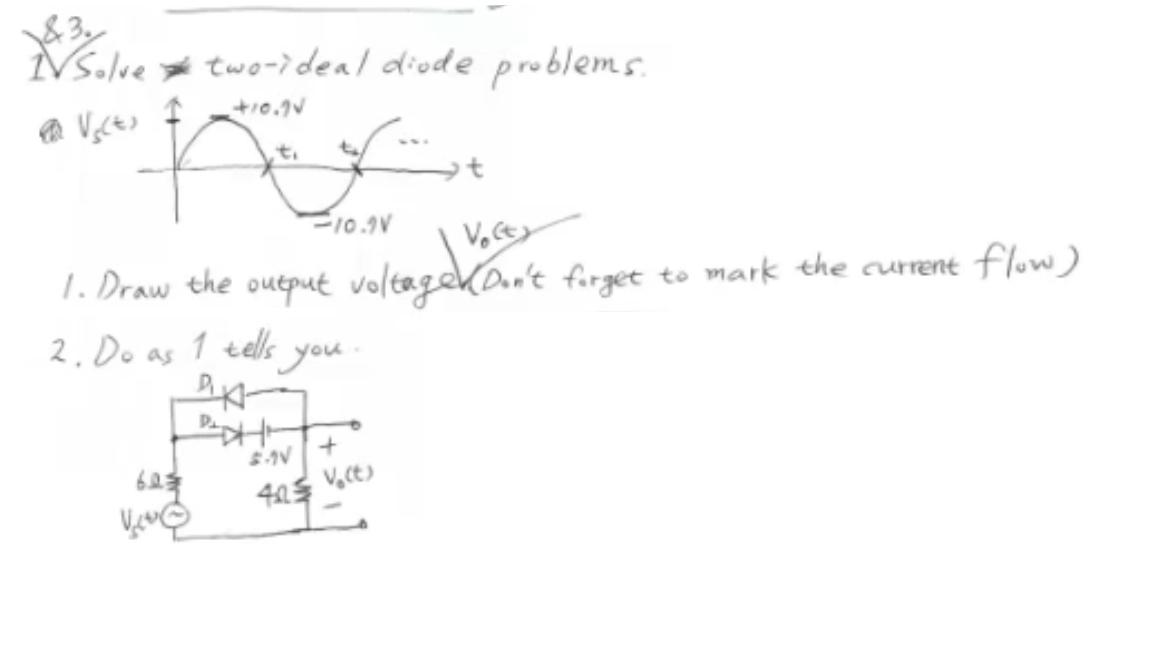 & 3.
Solve two-ideal diode problems.
+10.9V
Vs(t)
t₁ t₂ ...
t
-10.9V
Vo(t)
1. Draw the output voltage (Don't forget to mark the current flow)
2. Do as 1 tells you.
D₁
D₂
5.9V
+
6Ω
4Ω
Vo(t)
−
Vs(t)
~